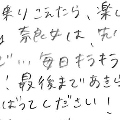 乗りこえたら、楽し
奈良女は、先い
ご…毎日キラキラ
!最後まであきら
ばってください!